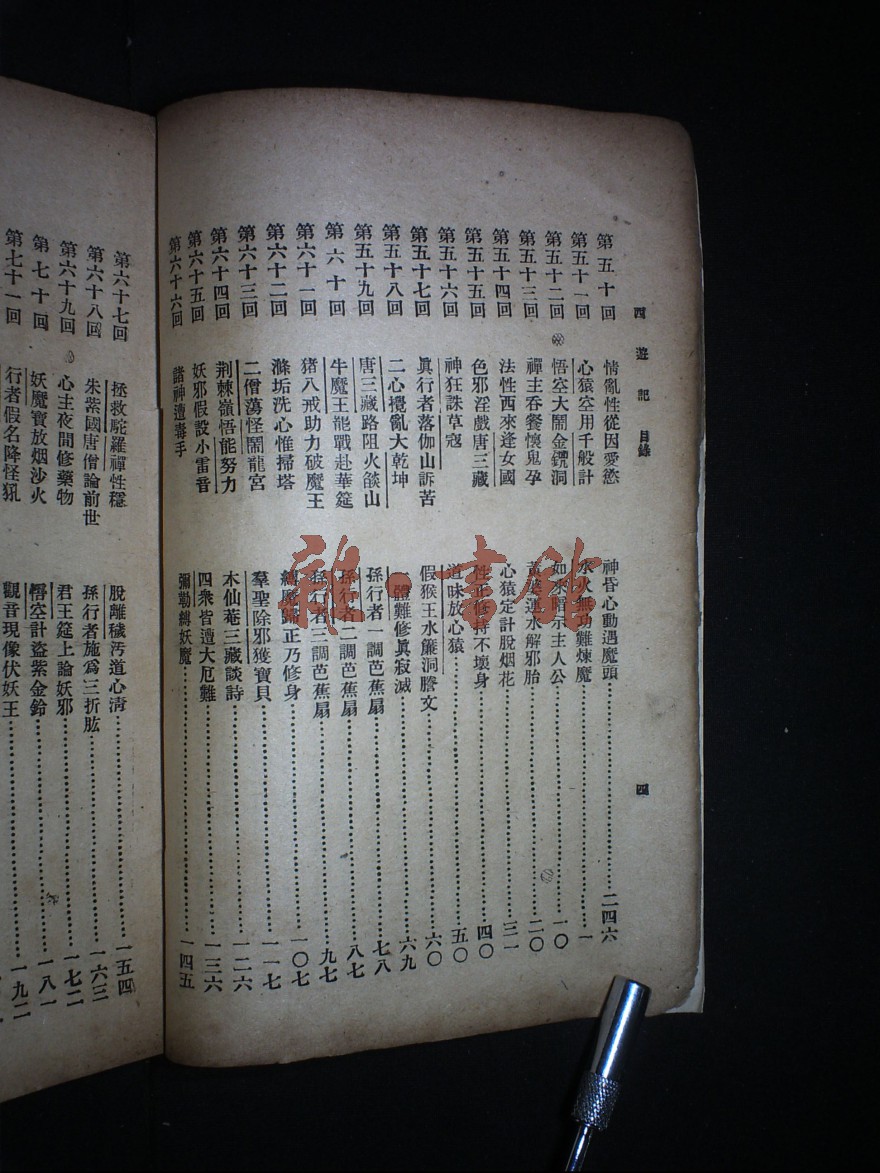 西遊記 目錄 四
第五十回 情亂性從因愛慾 神昏心動遇魔頭 二四六
第五十一回 心猿空用千般計 水火無功難煉魔 一
第五十二回 悟空大鬧金𠒇洞 如來暗示主人公 一〇
第五十三回 禪主吞餐懷鬼孕 黃婆運水解邪胎 二〇
第五十四回 法性西來逢女國 心猿定計脫烟花 三一
第五十五回 色邪淫戲唐三藏 性正修持不壞身 四〇
第五十六回 神狂誅草寇 道昧放心猿 五〇
第五十七回 眞行者落伽山訴苦 假猴王水簾洞謄文 六〇
第五十八回 二心攪亂大乾坤 一體難修眞寂滅 六九
第五十九回 唐三藏路阻火燄山 孫行者一調芭蕉扇 七八
第六十回 牛魔王罷戰赴華筵 孫行者二調芭蕉扇 八七
第六十一回 猪八戒助力破魔王 孫行者三調芭蕉扇 九七
第六十二回 滌垢洗心惟掃塔 縛魔歸正乃修身 一〇七
第六十三回 二僧蕩怪鬧龍宮 羣聖除邪獲寶貝 一一七
第六十四回 荆棘嶺悟能努力 木仙菴三藏談詩 一二六
第六十五回 妖邪假設小雷音 四衆皆遭大厄難 一三六
第六十六回 諸神遭毒手 彌勒縛妖魔 一四五
第六十七回 拯救駝羅禪性穩 脫離穢汚道心淸 一五四
第六十八回 朱紫國唐僧論前世 孫行者施爲三折肱 一六三
第六十九回 心主夜間修藥物 君王筵上論妖邪 一七二
第七十回 妖魔寶放烟沙火 悟空計盜紫金鈴 一八一
第七十一回 行者假名降怪犼 觀音現像伏妖王 一九二
雜·書館